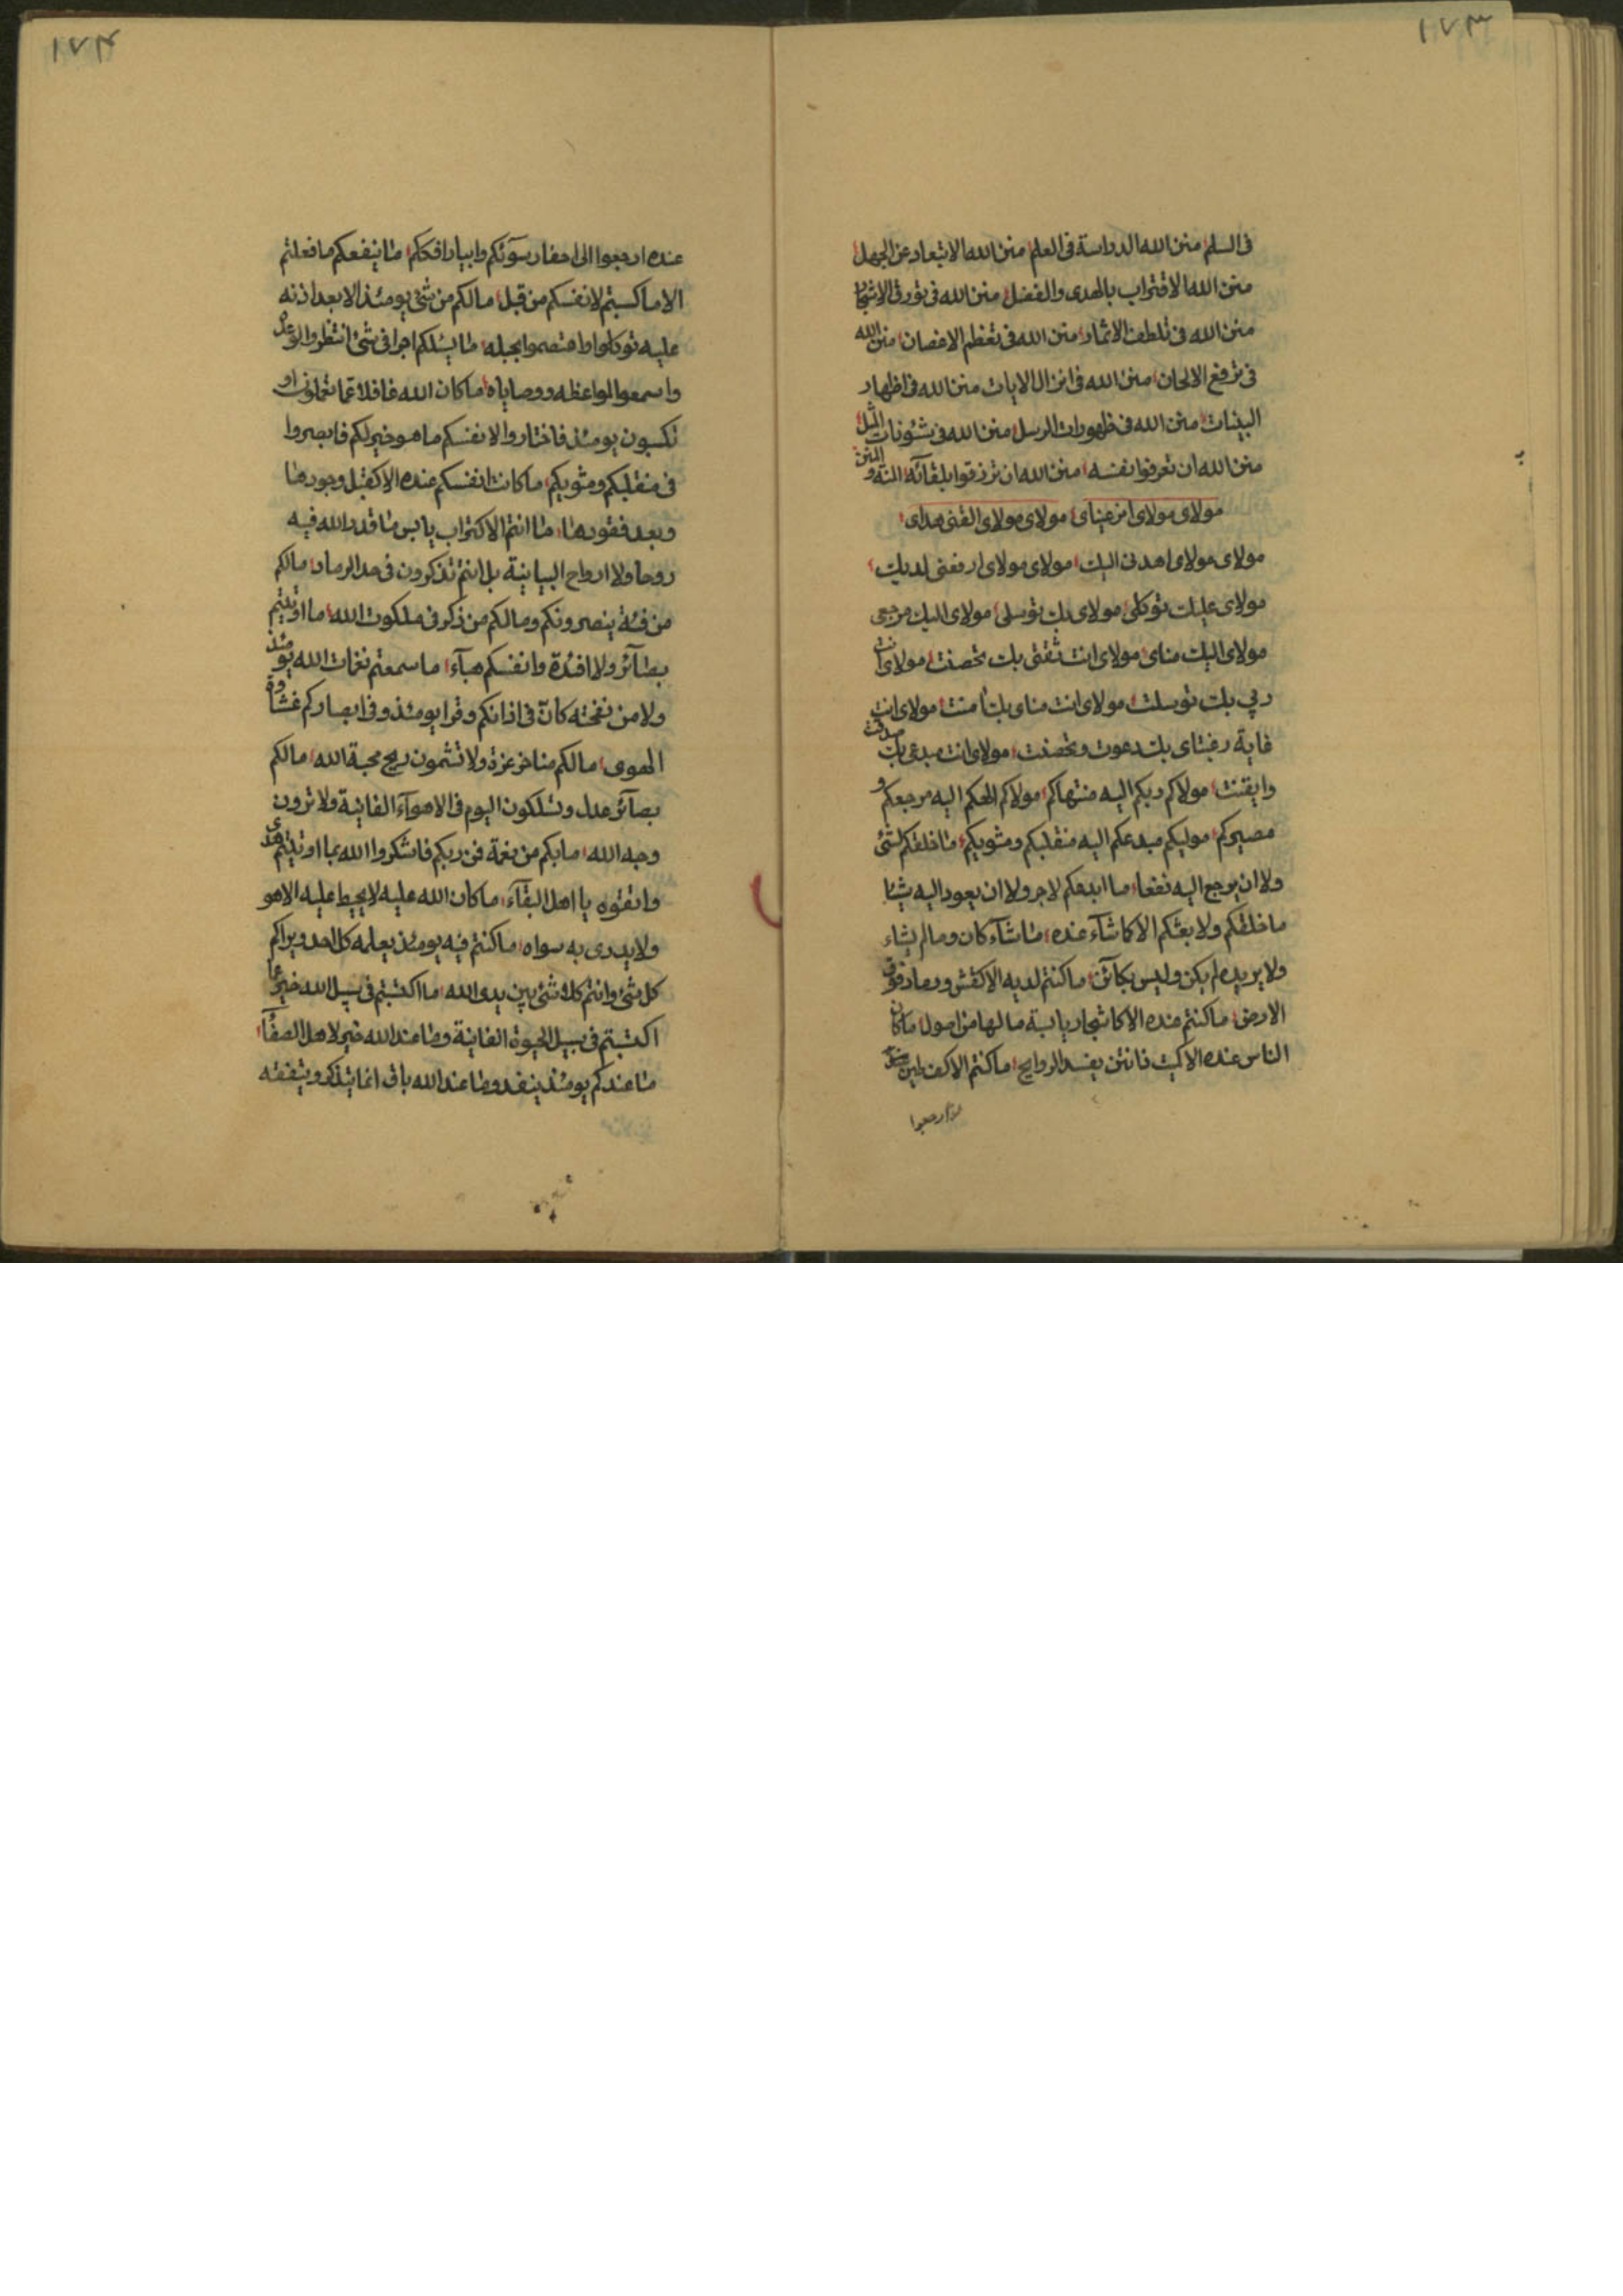 ١٧٣
فی السلم منن الله الدراسة فی العلم منن الله الابتعاد عن الجهل
منن الله الاقتراب بالهدی والفضل منن الله فی تورق الاشجار
منن الله فی تلطف الاثمار منن الله فی تعظم الاغصان منن الله
فی ترفع الالحان منن الله فی انزال الایات منن الله فی اظهار
البینات منن الله فی ظهورات الرسل منن الله فی شئونات المثل
منن الله ان تعرفوا نفسه منن الله ان ترزقوا بلقآئه المنة و المنن
مولای مولای انر عینای مولای مولای القنی هدای
مولای مولای اهدنی الیك مولای مولای ارفعنی لدیك
مولای علیك توکلی مولای بك توسلی مولای الیك مرجعی
مولای الیك منای مولای انت ثقتی بك تحصنت مولای انت
ربی بك توسلت مولای انت منای بك امنت مولای انت
غایة رغبتای بك دعوت وتحصنت مولای انت مبدعی بك صدقت
وایقنت مولاکم ربکم الیه منتهاکم مولاکم الحکم الیه مرجعکم و
مصیرکم مولیکم مبدعکم الیه منقلبکم ومثویکم ما خلقکم لشئ
ولا ان یرجع الیه نفعا ما ابدعکم لاجر ولا ان یعود الیه شیئا
ما خلقکم ولا بعثکم الا کما شآء عنده ما شآء کان وما لم یشاء
ولا یریده لم یکن ولیس بکآئن ما کنتم لدیه الا کقش ورماد فوق
الارض ما کنتم عنده الا کاشجار یابسة ما لها من اصول ما کان
الناس عنده الا کمیت نانتن یفسد الروایح ما کنتم الا کف طین
ارجعوا
١٧٤
عنده ارجعوا الی احفار سوآئکم وابیار افککم ما ینفعکم ما فعلتم
الا ما کسبتم لانفسکم من قبل ما لکم من شئ یومئذ الا بعد اذنه
علیه توکلوا واعتصموا بحبله ما یسئلکم اجرا فی شئ انتظروا لوعده
واسمعوا لمواعظه ووصایاه ما کان الله غافلا عما تعملون او
تکسبون یومئذ فاختاروا لانفسکم ما هو خیر لکم فابصروا
فی منقلبکم ومثویکم ما کانت انفسکم عنده الا کقبل وجودها
وبعد فقودها ما انتم الا کتراب یابس ما قدر الله فیه
روحا ولا ارواح البیانیة بل انتم تذکرون فی حد الرماد ما لکم
من فئة ینصرونکم وما لکم من ذکر فی ملکوت الله ما اوتیتم
بصآئر ولا افئدة وانفسکم هبآء ما سمعتم نغمات الله یومئذ
ولا من نفخته کان فی اذانکم وقرا یومئذ وفی ابصارکم غشاوة
الهوی ما لکم مناخر عزة ولا تشمون ریح محبة الله ما لکم
بصآئر عدل وتسلکون الیوم فی الاهوآء الفانیة ولا ترون
وجه الله ما بکم من نعمة فمن ربکم فاشکروا الله بما اوتیتم هدی
واتقوه یا اهل البقآء ما کان الله علیه لا یحیط علیه الا هو
ولا یدری به سواه ما کنتم فیه یومئذ یعلمه کل احد ویراکم
کل شئ وانتم کلا شئ بین یدی الله ما اکتسبتم فی سبیل الله خیر عما
اکتسبتم فی سبیل الحیوة الفانیة وما عند الله خیر لاهل الصفآء
ما عندکم یومئذ ینفد وما عند الله باق انما یتذکر ویتفقه